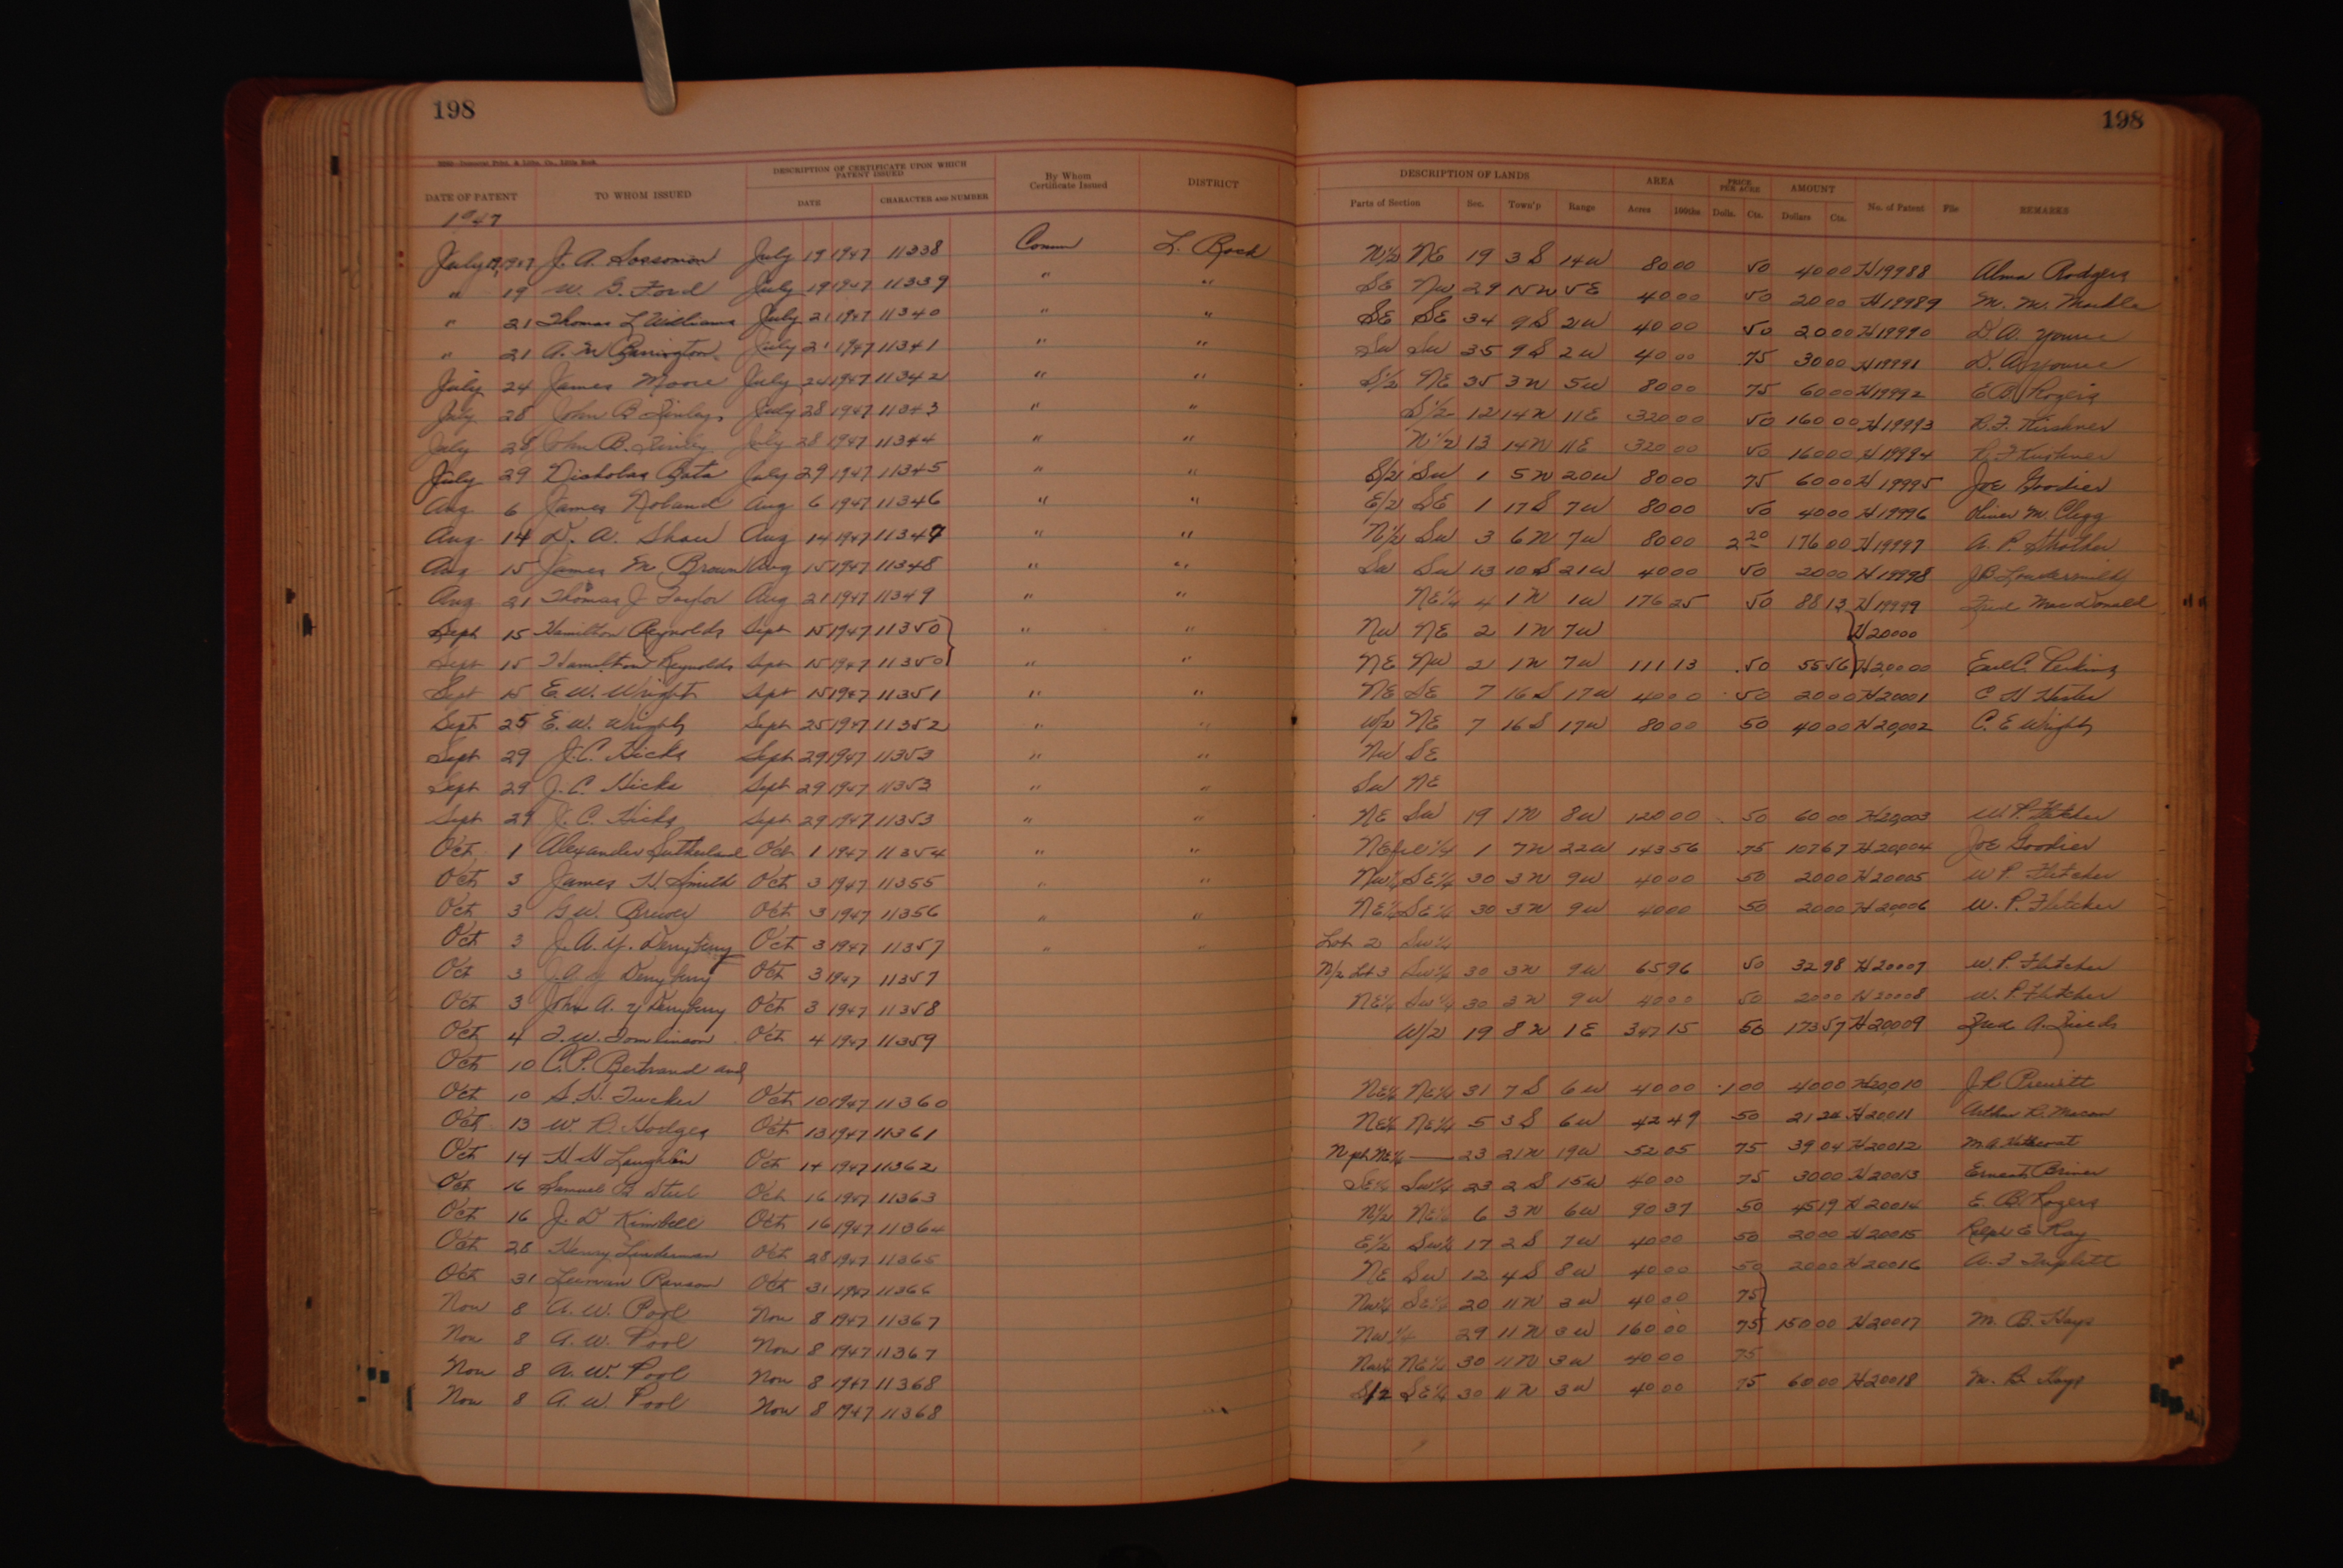 198 198
DATE OF PATENT TO WHOM ISSUED DESCRIPTION OF CERTIFICATE UPON WHICH PATENT ISSUED DATE CHARACTER AND NUMBER By Whom Certificate Issued DISTRICT DESCRIPTION OF LANDS Parts of Section Sec. Town'p Range AREA Acres 100ths PRICE PER ACRE Dolls. Cts. AMOUNT Dollars Cts. No. of Patent File REMARKS
1947
July 19, 1947 J. A. July 19 1947 11338 Comm L. Rock N1/2 NE 19 3 S 14 W 80 00 50 40 00 H19988 Alma Rodgers
" 19 W. G. Ford July 19 1947 11339 " " SE NW 29 15 N 5 E 40 00 50 20 00 H19989 M. M.
" 21 Thomas L Williams July 21 1947 11340 " " SE SE 34 9 S 2 W 40 00 50 20 00 H19990 D. A. Youree
" 21 A. M Barrington July 21 1947 11341 " " SW SW 35 9 S 2 W 40 00 75 30 00 H19991 D. A. Youree
July 24 James Moore July 24 1947 11342 " " S1/2 NE 35 3 N 5 W 80 00 75 60 00 H19992 E B Rogers
July 28 John B Finley July 28 1947 11343 " " S1/2 12 14 N 11 E 320 00 50 160 00 H19993 R. F. Kirshner
July 28 John B. Finley July 28 1947 11344 " " N1/2 13 14 N 11 E 320 00 50 160 00 H19994 R. F Kirshner
July 29 Nicholas Bata July 29 1947 11345 " " S/2 SW 1 5 N 20 W 80 00 75 60 00 H19995 Joe Goodier
Aug. 6 James Noland Aug 6 1947 11346 " " E/2 SE 1 17 S 7 W 80 00 50 40 00 H19996 Oliver M. Clegg
Aug. 14 D. A. Shaw Aug 14 1947 11347 " " N1/2 SW 3 6 N 7 W 80 00 2 20 176 00 H19997 A. P. Strother
Aug 15 James M. Brown Aug 15 1947 11348 " " SW SW 13 10 S 21 W 40 00 50 20 00 H19998 J B
Aug 21 Thomas J Taylor Aug 21 1947 11349 " " NE1/4 4 1 N 1 W 176 25 50 88 13 H19999 Fred MacDonald
Sept 15 Hamilton Reynolds Sept 15 1947 11350 " " NW NE 2 1 N 7 W H20000
Sept 15 Hamilton Reynolds Sept 15 1947 11350 " " NE NW 2 1 N 7 W 111 13 .50 55 56 H20,000 Earl C. Perkins
Sept 15 E. W. Wright Sept 15 1947 11351 " " NE SE 7 16 S 17 W 40 00 50 20 00 H20001 C H Hester
Sept 25 E. W. Wright Sept 25 1947 11352 " " W/2 NE 7 16 S 17 W 80 00 50 40 00 H20,002 C. E Wright
Sept 29 J. C. Hicks Sept 29 1947 11353 " " NW SE
Sept 29 J. C. Hicks Sept 29 1947 11353 " " SW NE
Sept 29 J. C. Hicks Sept 29 1947 11353 " " NE SW 19 1 N 8 W 120 00 50 60 00 H20,003 W. P. Fletcher
Oct 1 Alexander Sutherland Oct 1 1947 11354 " " NE frl 1/4 1 7 N 22 W 143 56 .75 107 67 H20,004 Joe Goodier
Oct 3 James H Smith Oct 3 1947 11355 " " NW1/4 SE1/4 30 3 N 9 W 40 00 50 20 00 H20005 W P. Fletcher
Oct 3 G W. Brewer Oct 3 1947 11356 " " NE1/4 SE1/4 30 3 N 9 W 40 00 50 20 00 H20,006 W. P. Fletcher
Oct 3 J. A. Y. Derryberry Oct 3 1947 11357 " " Lot 2 SW1/4
Oct 3 J. A. Y Derryberry Oct 3 1947 11357 N/2 Lot 3 SW1/4 30 3 N 9 W 65 96 50 32 98 H20007 W. P. Fletcher
Oct 3 John A. Y Derryberry Oct 3 1947 11358 NE1/4 SW1/4 30 3 N 9 W 40 00 50 20 00 H20008 W. P. Fletcher
Oct 4 T. W. Tomlinson Oct 4 1947 11359 W/2 19 8 N 1 E 347 15 50 173 57 H20,009 Fred A.
Oct 10 C. P. Bertrand and
Oct 10 S. H. Tucker Oct 10 1947 11360 NE1/4 NE1/4 31 7 S 6 W 40 00 1 00 40 00 H20,010 J R Prewitt
Oct 13 W. R. Hodges Oct 13 1947 11361 NE1/4 NE1/4 5 3 S 6 W 42 49 50 21 24 H20,011 Arthur R. Macom
Oct 14 H H Laughlin Oct 14 1947 11362 N pt NE1/4 — 23 21 N 19 W 52 05 75 39 04 H20012 M. A.
Oct 16 Samuel B Steel Oct 16 1947 11363 SE1/4 SW1/4 23 2 S 15 W 40 00 75 30 00 H20013 Ernest Briner
Oct 16 J. D Kimbell Oct 16 1947 11364 N1/2 NE1/4 6 3 N 6 W 90 37 50 45 19 H20014 E. B. Rogers
Oct 28 Henry Linderman Oct 28 1947 11365 E1/2 SW1/4 17 2 S 7 W 40 00 50 20 00 H20015 Ralph E Ray
Oct 31 Ranson Oct 31 1947 11366 NE SW 12 4 S 8 W 40 00 50 20 00 H20016 A. F Triplett
Nov 8 A. W. Pool Nov 8 1947 11367 NW1/4 SE1/4 20 11 N 3 W 40 00 75
Nov 8 A. W. Pool Nov 8 1947 11367 NW 1/4 29 11 N 3 W 160 00 75 150 00 H20017 M. B. Hays
Nov 8 A. W. Pool Nov 8 1947 11368 NW1/4 NE1/4 30 11 N 3 W 40 00 75
Nov 8 A. W. Pool Nov 8 1947 11368 S/2 SE1/4 30 11 N 3 W 40 00 75 60 00 H20018 M. B. Hays